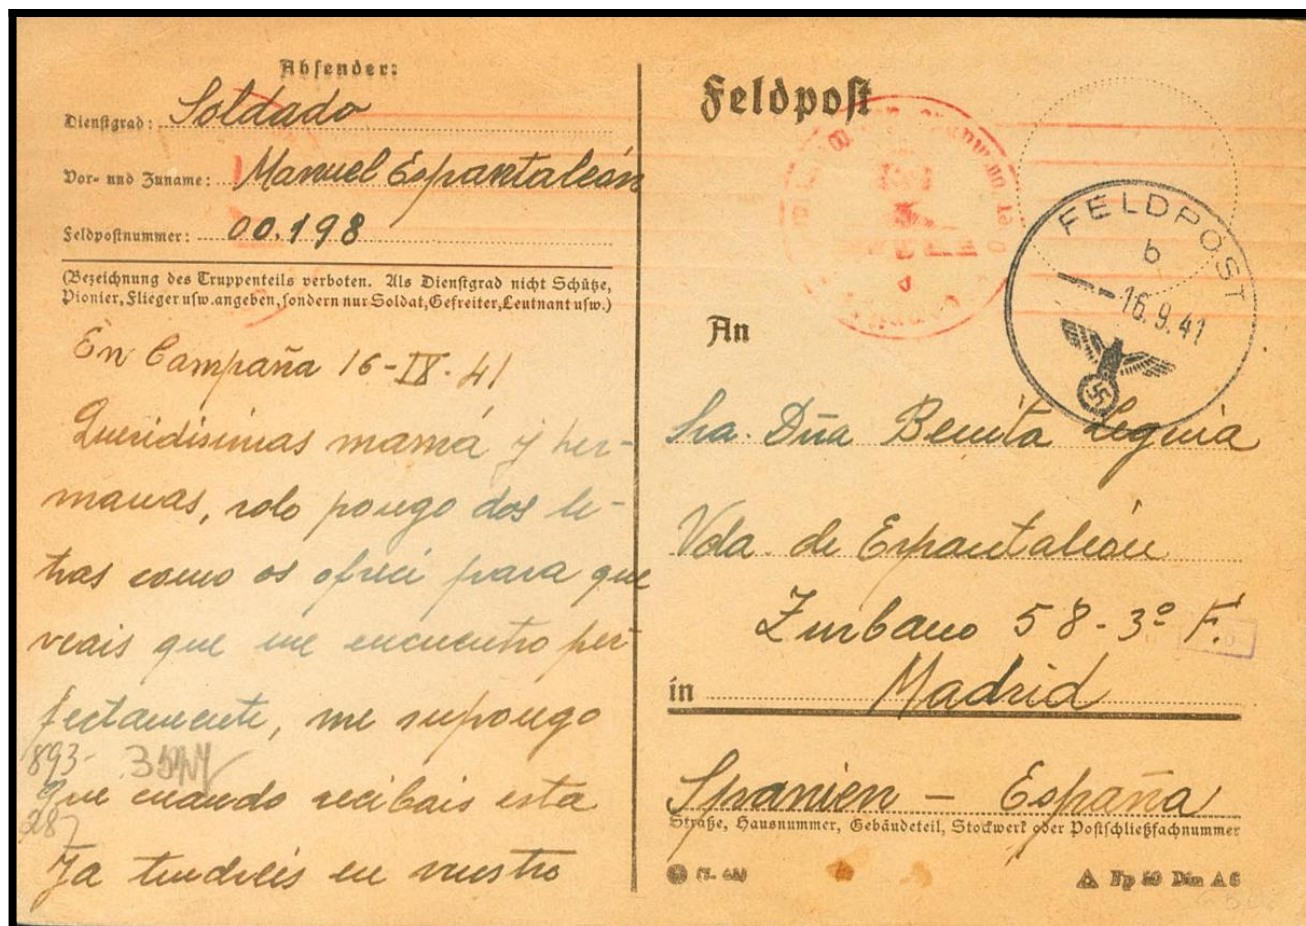 Absender:
Dienstgrad: Soldado
Vor- und Zuname: Manuel Espantaleón
Feldpostnummer: 00.198
(Bezeichnung des Truppenteils verboten. Als Dienstgrad nicht Schütze,
Pionier, Flieger usw. angeben, sondern nur Soldat, Gefreiter, Leutnant usw.)
En Campaña 16-IX-41
Queridisimas mamá y her-
manas, solo pongo dos le-
tras como os ofreci para que
veais que me encuentro per-
fectamente, me supongo
893-
que cuando recibais esta
287
Ya tendreis en vuestro
Feldpost
FELDPOST
b
16.9.41
An
Sra. Dña Benita Leguia
Vda. de Espantaleón
Zurbano 58-3º F.
in Madrid
Spanien - España
Straße, Hausnummer, Gebäudeteil, Stockwerk oder Postschließfachnummer
Fp Din A6